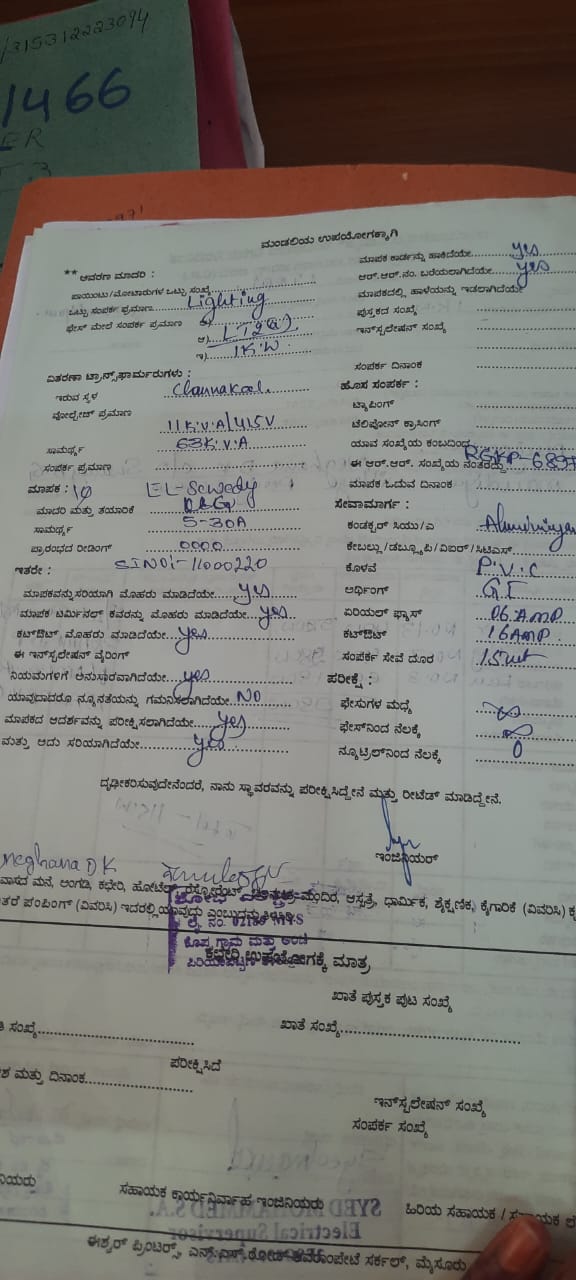 /315312223094
1466
ER
ಮಂಡಲಿಯ ಉಪಯೋಗಕ್ಕಾಗಿ
** ಆವರಣ ಮಾದರಿ :
ಮಾಪಕ ಕಾರ್ಡನ್ನು ಹಾಕಿದೆಯೇ yes
ಪಾಯಿಂಟು/ಮೋಟಾರುಗಳ ಒಟ್ಟು ಸಂಖ್ಯೆ
ಆರ್.ಆರ್.ನಂ. ಬರೆಯಲಾಗಿದೆಯೇ yes
ಒಟ್ಟು ಸಂಪರ್ಕ ಪ್ರಮಾಣ Lighting
ಮಾಪಕದಲ್ಲಿ ಹಾಳೆಯನ್ನು ಇಡಲಾಗಿದೆಯೇ
ಫೇಸ್ ಮೇಲೆ ಸಂಪರ್ಕ ಪ್ರಮಾಣ
ಪುಸ್ತಕದ ಸಂಖ್ಯೆ
ಆ)
ಇನ್‌ಸ್ಟಲೇಷನ್ ಸಂಖ್ಯೆ
ಇ) 1K.W
ಸಂಪರ್ಕ ದಿನಾಂಕ
ವಿತರಣಾ ಟ್ರಾನ್ಸ್‌ಫಾರ್ಮರುಗಳು :
ಹೊಸ ಸಂಪರ್ಕ :
ಇರುವ ಸ್ಥಳ
ಟ್ಯಾಪಿಂಗ್
ವೋಲ್ಟೇಜ್ ಪ್ರಮಾಣ 11K.V.A/415V
ಟೆಲಿಫೋನ್ ಕ್ರಾಸಿಂಗ್
ಸಾಮರ್ಥ್ಯ 63K.V.A
ಯಾವ ಸಂಖ್ಯೆಯ ಕಂಬದಿಂದ
ಸಂಪರ್ಕ ಪ್ರಮಾಣ
ಈ ಆರ್.ಆರ್. ಸಂಖ್ಯೆಯ ನಂತರದ್ದು
ಮಾಪಕ : 1Ø EL-Sewedy
ಮಾಪಕ ಓದುವ ದಿನಾಂಕ
ಮಾದರಿ ಮತ್ತು ತಯಾರಿಕೆ
ಸೇವಾಮಾರ್ಗ :
ಸಾಮರ್ಥ್ಯ 5-30A
ಕಂಡಕ್ಟರ್ ಸಿಯು/ಎ
ಪ್ರಾರಂಭದ ರೀಡಿಂಗ್ 0000
ಕೇಬಲ್ಲು/ಡಬ್ಲ್ಯೂಪಿ/ಐಆರ್/ಸಿಟಿಎಸ್
ಇತರೇ : SlNO:-11000220
ಕೊಳವೆ P.V.C
ಮಾಪಕವನ್ನು ಸರಿಯಾಗಿ ಮೊಹರು ಮಾಡಿದೆಯೇ yes
ಅರ್ಥಿಂಗ್ G.I
ಮಾಪಕ ಟರ್ಮಿನಲ್ ಕವರನ್ನು ಮೊಹರು ಮಾಡಿದೆಯೇ yes
ಏರಿಯಲ್ ಫ್ಯೂಸ್ 06 AMP
ಕಟ್‌ಔಟ್ ಮೊಹರು ಮಾಡಿದೆಯೇ yes
ಕಟ್‌ಔಟ್ 16 AMP
ಈ ಇನ್‌ಸ್ಟಲೇಷನ್ ವೈರಿಂಗ್
ಸಂಪರ್ಕ ಸೇವೆ ದೂರ 15mt
ನಿಯಮಗಳಿಗೆ ಅನುಸಾರವಾಗಿದೆಯೇ yes
ಪರೀಕ್ಷೆ :
ಯಾವುದಾದರೂ ನ್ಯೂನತೆಯನ್ನು ಗಮನಿಸಲಾಗಿದೆಯೇ NO
ಫೇಸುಗಳ ಮಧ್ಯೆ ∞
ಮಾಪಕದ ಆದರ್ಶವನ್ನು ಪರೀಕ್ಷಿಸಲಾಗಿದೆಯೇ yes
ಫೇಸ್‌ನಿಂದ ನೆಲಕ್ಕೆ ∞
ಮತ್ತು ಅದು ಸರಿಯಾಗಿದೆಯೇ yes
ನ್ಯೂಟ್ರಿಲ್‌ನಿಂದ ನೆಲಕ್ಕೆ 0
ದೃಢೀಕರಿಸುವುದೇನೆಂದರೆ, ನಾನು ಸ್ಥಾವರವನ್ನು ಪರೀಕ್ಷಿಸಿದ್ದೇನೆ ಮತ್ತು ರೀಟೆಡ್ ಮಾಡಿದ್ದೇನೆ.
ಇಂಜಿನಿಯರ್
Meghana D K
ವಾಸದ ಮನೆ, ಅಂಗಡಿ, ಕಛೇರಿ, ಹೋಟೆಲ್, ರೆಸ್ಟೋರೆಂಟ್, ಮಂದಿರ, ಆಸ್ಪತ್ರೆ, ಧಾರ್ಮಿಕ, ಶೈಕ್ಷಣಿಕ, ಕೈಗಾರಿಕೆ (ವಿವರಿಸಿ)
ಪಂಪಿಂಗ್ (ವಿವರಿಸಿ) ಇದರಲ್ಲಿ ಯಾವುದು
ಕಛೇರಿ ಉಪಯೋಗಕ್ಕೆ ಮಾತ್ರ
ಖಾತೆ ಪುಸ್ತಕ ಪುಟ ಸಂಖ್ಯೆ
ಸಂಖ್ಯೆ
ಖಾತೆ ಸಂಖ್ಯೆ
ಪರೀಕ್ಷಿಸಿದೆ
ಮತ್ತು ದಿನಾಂಕ
ಇನ್‌ಸ್ಟಲೇಷನ್ ಸಂಖ್ಯೆ
ಸಂಪರ್ಕ ಸಂಖ್ಯೆ
ಸಹಾಯಕ ಕಾರ್ಯನಿರ್ವಾಹ ಇಂಜಿನಿಯರು
ಹಿರಿಯ ಸಹಾಯಕ / ಸಹಾಯಕ
ಈಶ್ವರ್ ಪ್ರಿಂಟರ್ಸ್, ಎನ್.ಎಸ್.ರೋಡ್ ಸರ್ಕಲ್, ಮೈಸೂರು